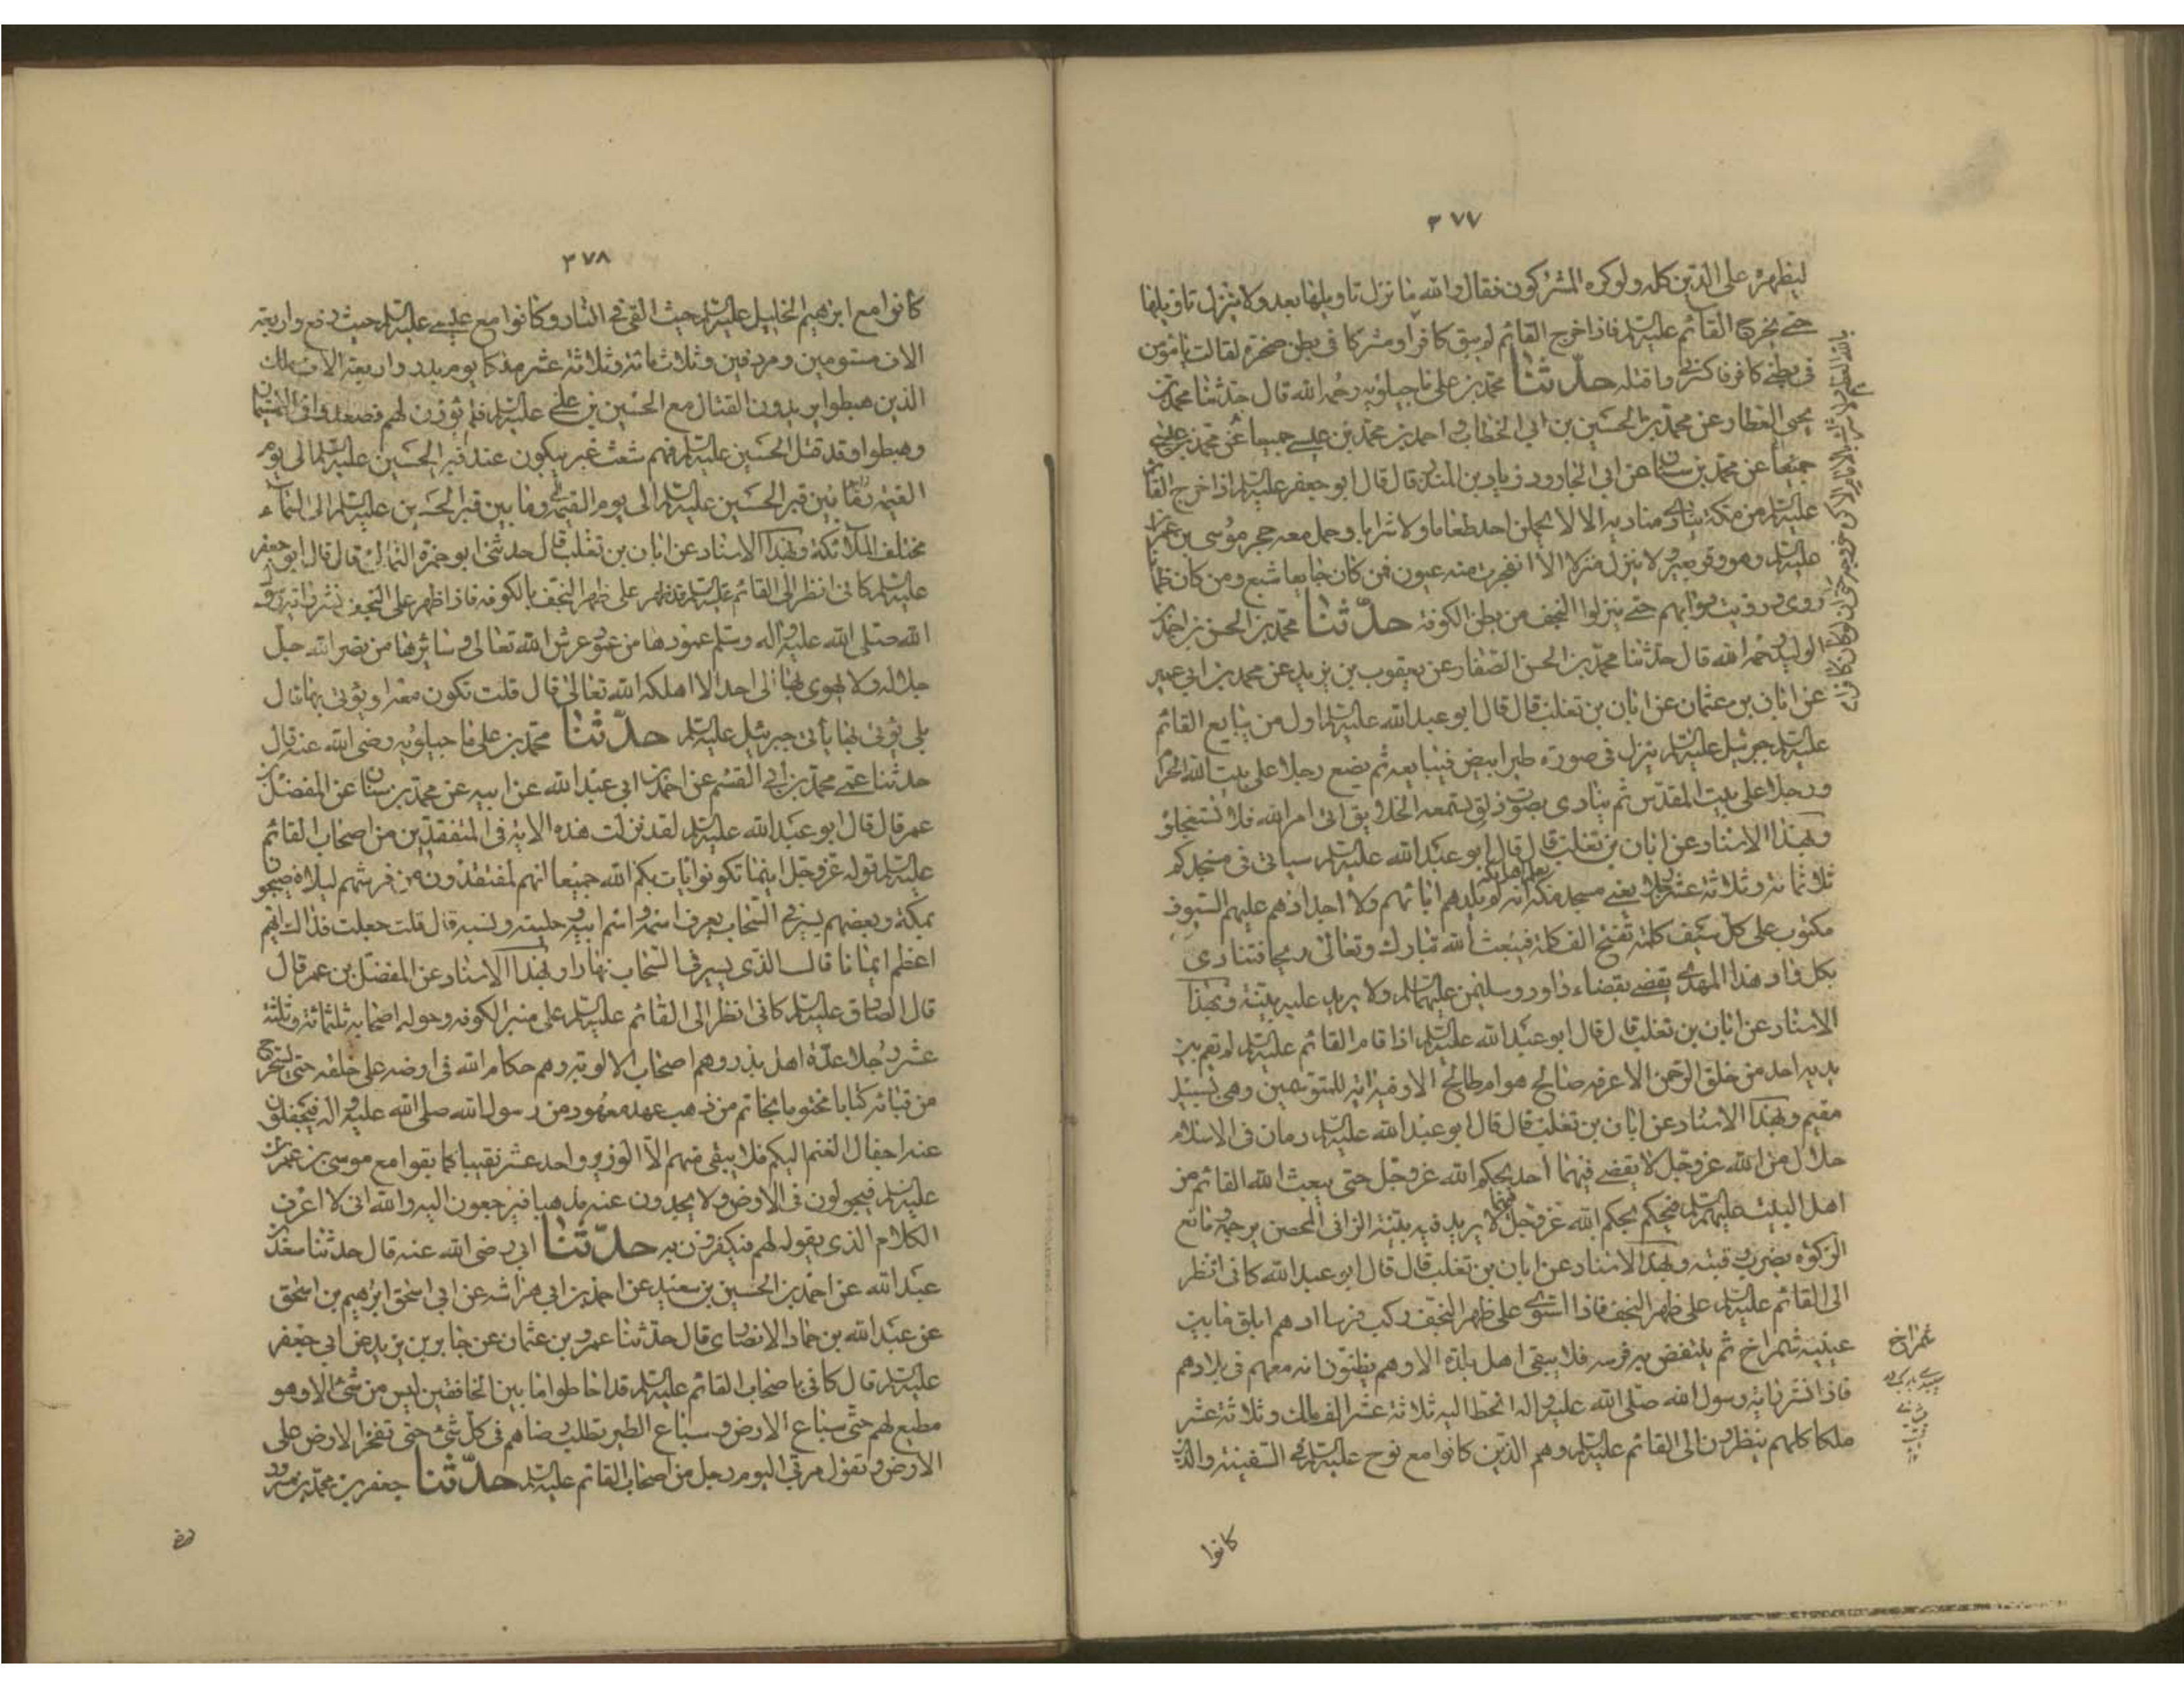 ٣٧٧
ليظهره على الدين كله ولو كره المشركون فقال والله ما نزل تاويلها بعد ولا ينزل تاويلها
حتى يخرج القائم عليه السلم فاذا خرج القائم لم يبق كافرا ومشركا فى بطن صخرة لقالت يا مؤمن
فى بطنى كافر فاكسرنى واقتله حدثنا محمد بن على ماجيلويه رحمه الله قال حدثنا محمد بن
يحيى العطار عن محمد بن الحسين بن ابى الخطاب و احمد بن محمد بن عيسى جميعا عن محمد بن
جميعا عن محمد بن سنان عن ابى الجارود زياد بن المنذر قال قال ابو جعفر عليه السلم اذا خرج القائم
عليه السلم من مكة ينادى مناديه الا لا يحملن احد طعاما ولا شرابا وحمل معه حجر موسى بن عمران
عليه السلم وهو وقر بعير ولا ينزل منزلا الا انفجرت منه عيون فمن كان جايعا شبع ومن كان ظمانا
روى و رويت دوابهم حتى ينزلوا النجف من بطن الكوفة حدثنا محمد بن الحسن بن احمد بن
الوليد رحمه الله قال حدثنا محمد بن الحسن الصفار عن يعقوب بن يزيد عن محمد بن ابى عمير
عن ابان بن عثمان عن ابان بن تغلب قال قال ابو عبد الله عليه السلم اول من يبايع القائم
عليه السلم جبرئيل عليه السلم ينزل فى صورة طير ابيض فيبايعه ثم يضع رجلا على بيت الله الحرام
ورجلا على بيت المقدس ثم ينادى بصوت ذلق تسمعه الخلايق اتى امر الله فلا تستعجلوه
وبهذا الاسناد عن ابان بن تغلب قال قال ابو عبد الله عليه السلم سياتى فى مسجدكم
ثلاثمائة وثلاثة عشر رجلا يعنى مسجد مكة يعلم اهل مكة انه لم يلدهم ابائهم ولا اجدادهم عليهم السيوف
مكتوب على كل سيف كلمة تفتح الف كلمة فيبعث الله تبارك وتعالى ريحا فتنادى
بكل واد هذا المهدى يقضى بقضاء داود وسليمن عليهما السلم ولا يريد عليه بينة وبهذا
الاسناد عن ابان بن تغلب قال قال ابو عبد الله عليه السلم اذا قام القائم عليه السلم لم يقم بين
يديه احد من خلق الرحمن الا عرفه صالح هو ام طالح الا وفيه اية للمتوسمين وهى بسبيل
مقيم وبهذا الاسناد عن ابان بن تغلب قال قال ابو عبد الله عليه السلم دمان فى الاسلام
حلال من الله عز وجل لا يقضى فيهما احد بحكم الله عز وجل حتى يبعث الله القائم من
اهل البيت عليهم السلم فيحكم فيهما بحكم الله عز وجل لا يريد فيه بينة الزانى المحصن يرجمه ومانع
الزكوة يضرب رقبته وبهذا الاسناد عن ابان بن تغلب قال قال ابو عبد الله كانى انظر
الى القائم عليه السلم على ظهر النجف فاذا استوى على ظهر النجف ركب فرسا ادهم ابلق ما بين
عينيه شمراخ ثم ينتفض به فرسه فلا يبقى اهل بلدة الا وهم يظنون انه معهم فى بلادهم
فاذا نشر راية رسول الله صلى الله عليه واله انحط اليه ثلاثة عشر الف ملك وثلاثة عشر
ملكا كلهم ينظرون الى القائم عليه السلم وهم الذين كانوا مع نوح عليه السلم فى السفينة والذين
شمراخ
كانوا
٣٧٨
كانوا مع ابرهيم الخليل عليه السلم حيث القى فى النار وكانوا مع عيسى عليه السلم حيث رفع واربعة
الاف مسومين ومردفين وثلاثمائة وثلاثة عشر ملكا يوم بدر واربعة الاف ملك
الذين هبطوا يريدون القتال مع الحسين بن على عليه السلم فلم يؤذن لهم فصعدوا فى الاستيمار
وهبطوا وقد قتل الحسين عليه السلم فهم شعث غبر يبكون عند قبر الحسين عليه السلم الى يوم
القيمة وما بين قبر الحسين عليه السلم الى يوم القيمة وما بين قبر الحسين عليه السلم الى السماء
مختلف الملائكة وبهذا الاسناد عن ابان بن تغلب قال حدثنى ابو حمزة الثمالى قال قال ابو جعفر
عليه السلم كانى انظر الى القائم عليه السلم قد ظهر على ظهر النجف بالكوفة فاذا ظهر على النجف نشر راية رسول
الله صلى الله عليه واله وسلم عمودها من عمود عرش الله تعالى وسائرها من نصر الله جل
جلاله ولا يهوى بها الى احد الا اهلكه الله تعالى قال قلت تكون معه او يؤتى بها قال
بلى يؤتى بها ياتى جبرئيل عليه السلم حدثنا محمد بن على ماجيلويه رضى الله عنه قال
حدثنا عمى محمد بن ابى القسم عن احمد بن ابى عبد الله عن ابيه عن محمد بن سنان عن المفضل بن
عمر قال قال ابو عبد الله عليه السلم لقد نزلت هذه الاية فى المفتقدين من اصحاب القائم
عليه السلم قوله عز وجل اينما تكونوا يات بكم الله جميعا انهم لمفتقدون من فرشهم ليلا فيصبحون
بمكة وبعضهم يسير فى السحاب يعرف اسمه واسم ابيه وحليته ونسبه قال قلت جعلت فداك ايهم
اعظم ايمانا قال الذى يسير فى السحاب نهارا وبهذا الاسناد عن المفضل بن عمر قال
قال الصادق عليه السلم كانى انظر الى القائم عليه السلم على منبر الكوفة وحوله اصحابه ثلثمائة وثلثة
عشر رجلا عدة اهل بدر وهم اصحاب الالوية وهم حكام الله فى ارضه على خلقه حتى يستخرج
من قبائه كتابا مختوما بخاتم من ذهب عهد معهود من رسول الله صلى الله عليه واله فيجفلون
عنه اجفال الغنم البكم فلا يبقى منهم الا الوزير واحد عشر نقيبا كما بقوا مع موسى بن عمران
عليه السلم فيجولون فى الارض ولا يجدون عنه مذهبا فيرجعون اليه والله انى لا اعرف
الكلام الذى يقوله لهم فيكفرون به حدثنا ابى رضى الله عنه قال حدثنا سعد بن
عبد الله عن احمد بن الحسين بن سعيد عن احمد بن ابى هراشه عن ابى اسحق ابرهيم بن اسحق
عن عبد الله بن حماد الانصارى قال حدثنا عمرو بن عثمان عن جابر بن يزيد عن ابى جعفر
عليه السلم قال كانى باصحاب القائم عليه السلم قد احاطوا ما بين الخافقين ليس من شئ الا وهو
مطيع لهم حتى سباع الارض وسباع الطير تطلب رضاهم فى كل شئ حتى تفخر الارض على
الارض وتقول مر بى اليوم رجل من اصحاب القائم عليه السلم حدثنا جعفر بن محمد بن مسرور